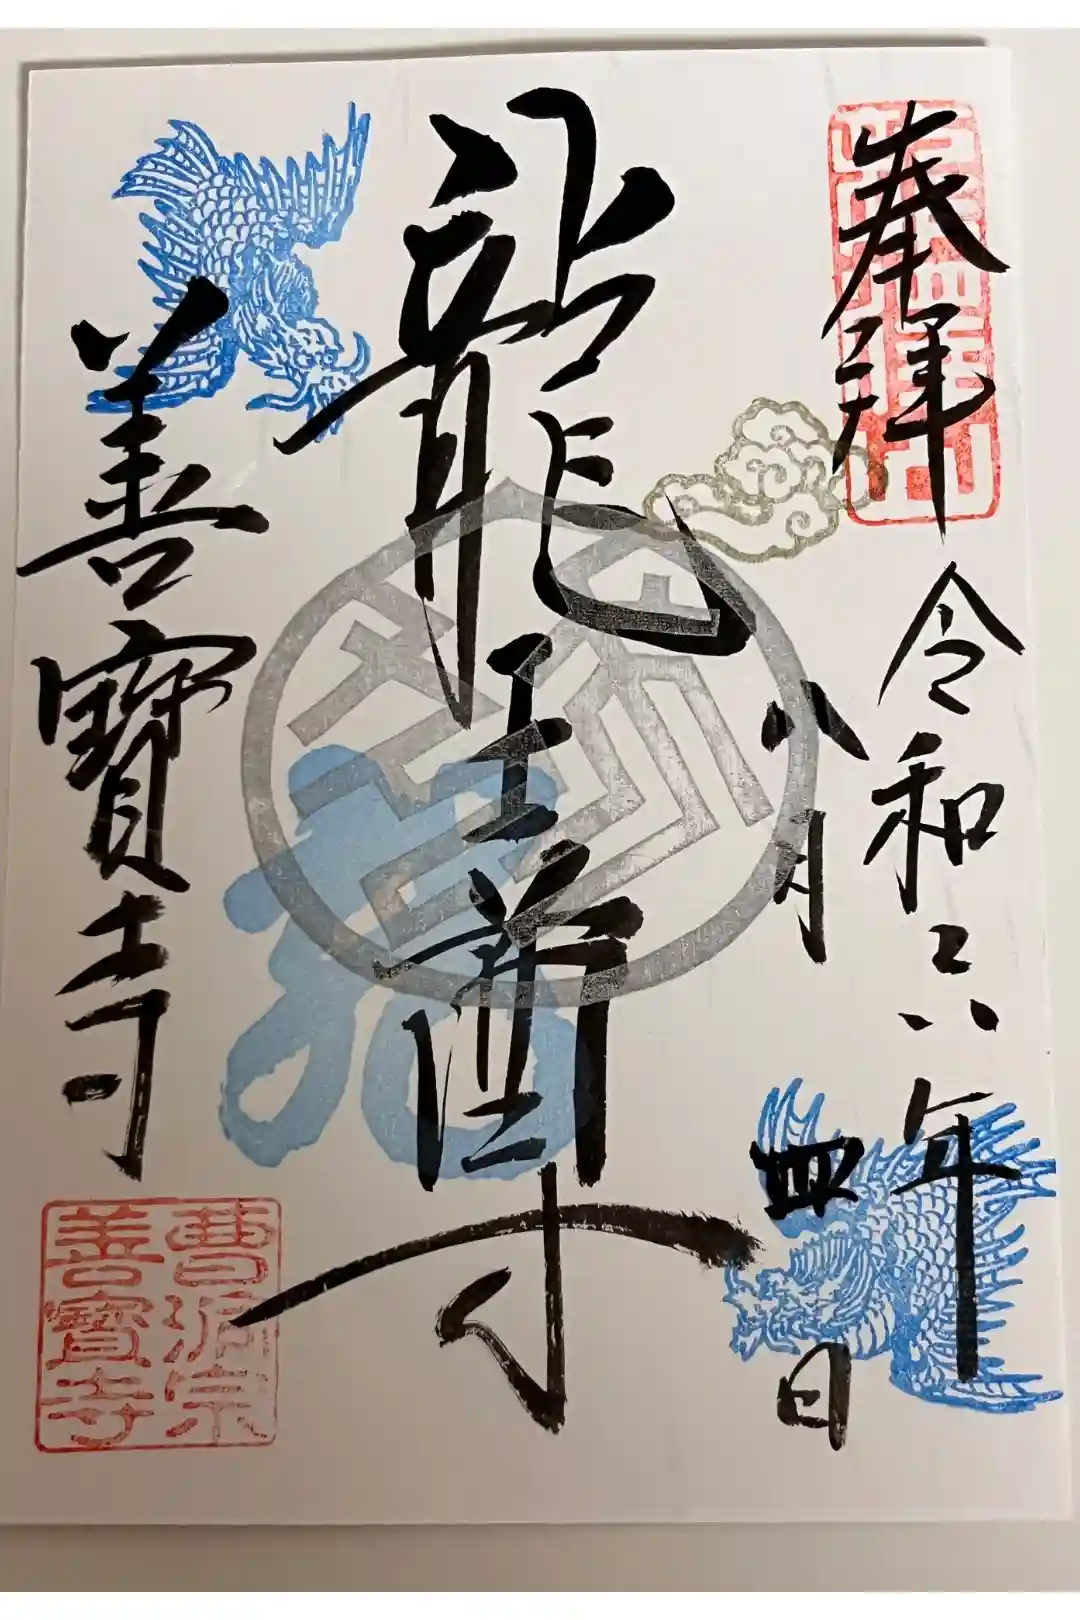 奉拝
令和六年
八月四日
龍王尊
善寳寺
曹洞宗
善寳寺